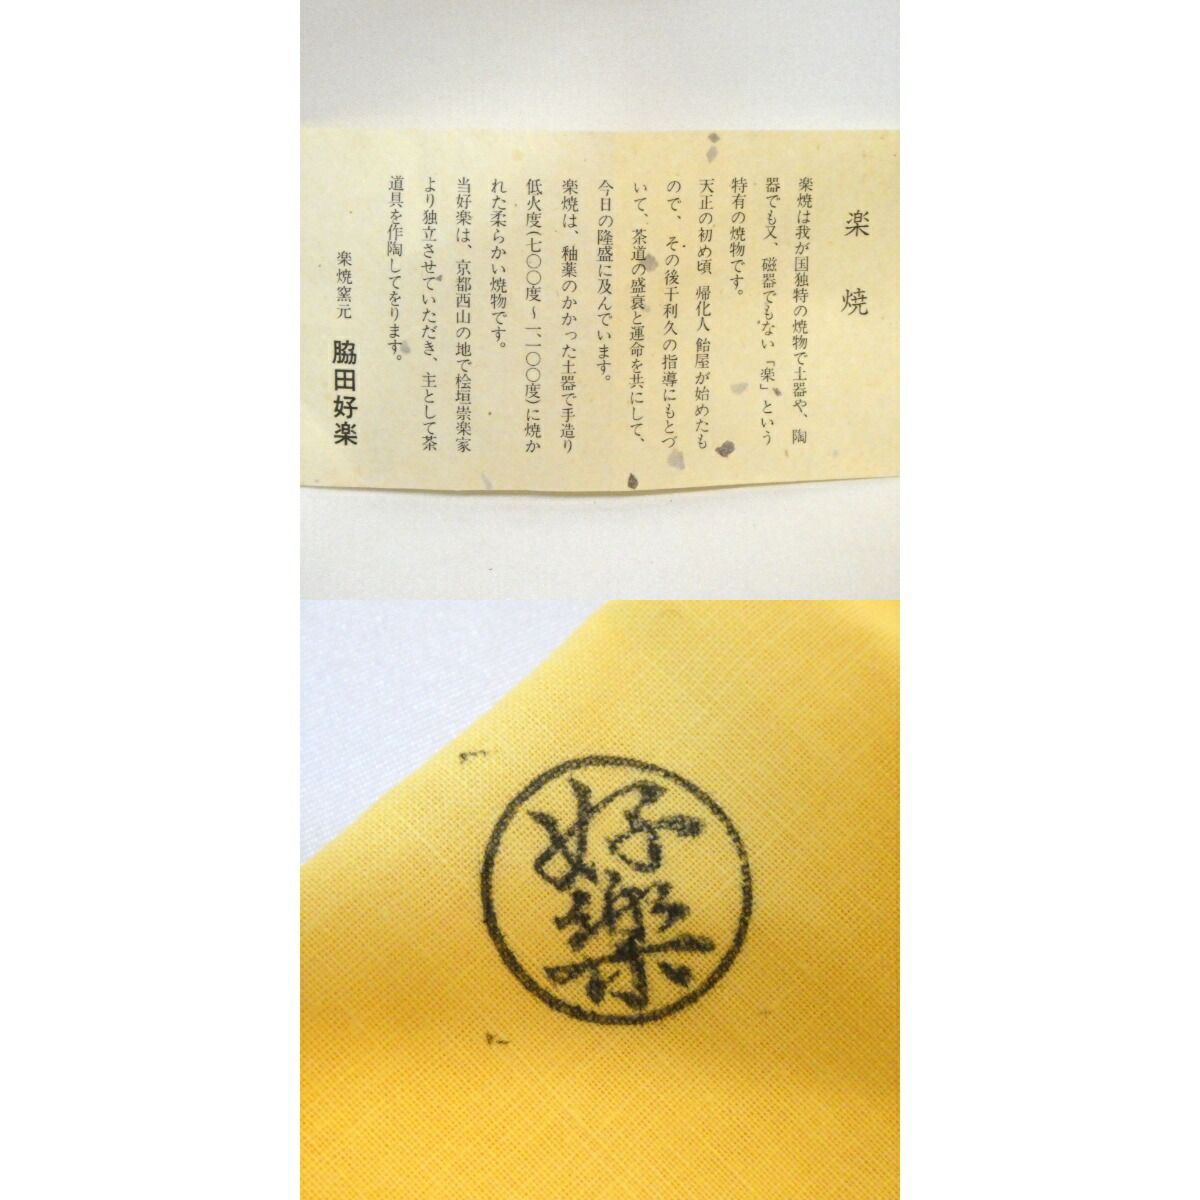 楽焼
楽焼は我が国独特の焼物で土器や、陶
器でも又、磁器でもない「楽」という
特有の焼物です。
天正の初め頃 帰化人 飴屋が始めたも
ので、その後千利久の指導にもとづ
いて、茶道の盛衰と運命を共にして、
今日の隆盛に及んでいます。
楽焼は、釉薬のかかった土器で手造り
低火度(七〇〇度〜一、一〇〇度)に焼か
れた柔らかい焼物です。
当好楽は、京都西山の地で桧垣崇楽家
より独立させていただき、主として茶
道具を作陶してをります。
楽焼窯元 脇田好楽
好樂